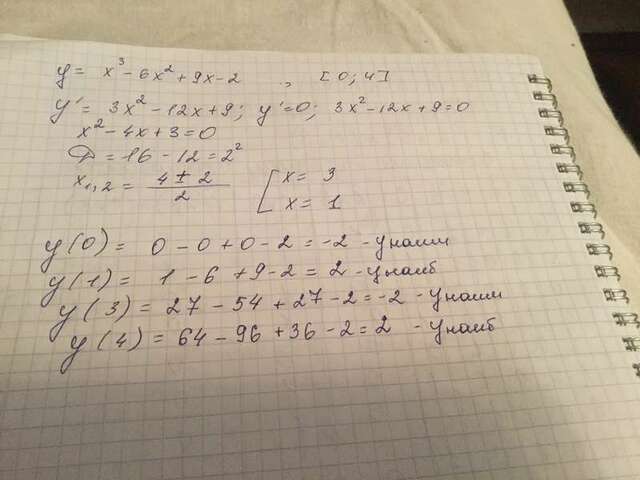 y = x³ - 6x² + 9x - 2 , [0; 4]
y' = 3x² - 12x + 9; y' = 0; 3x² - 12x + 9 = 0
x² - 4x + 3 = 0
D = 16 - 12 = 2²
x₁,₂ = (4 ± 2)/2 [x = 3
x = 1
y(0) = 0 - 0 + 0 - 2 = -2 - yнаим
y(1) = 1 - 6 + 9 - 2 = 2 - yнаиб
y(3) = 27 - 54 + 27 - 2 = -2 - yнаим
y(4) = 64 - 96 + 36 - 2 = 2 - yнаиб